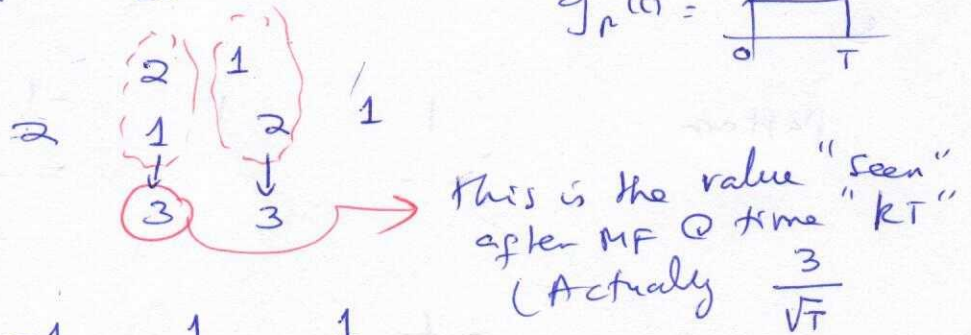 g_R(t) =
0 T
2 1
2 1 2 1
3 3
this is the value "seen"
after MF @ time "kT"
(Actually 3/√T
1 1 1